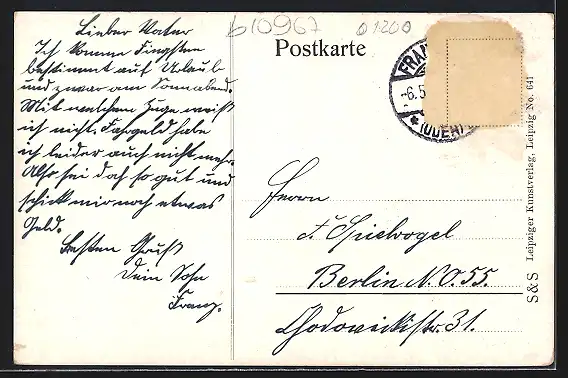 b10967 01200
Lieber Vater
Ich komme Pfingsten
bestimmt auf Urlaub
und zwar am Sonnabend.
Mit welchem Zuge weiß
ich nicht. Fahrgeld habe
ich leider auch nicht mehr.
Also sei doch so gut und
schick mir noch etwas
Geld.
Besten Gruß
Dein Sohn
Franz.
Postkarte
FRAN
-6.5
*(ODER)
Herrn
F. Spielvogel
Berlin N.O. 55.
Chodowieckistr. 31.
S&S Leipziger Kunstverlag, Leipzig No. 641